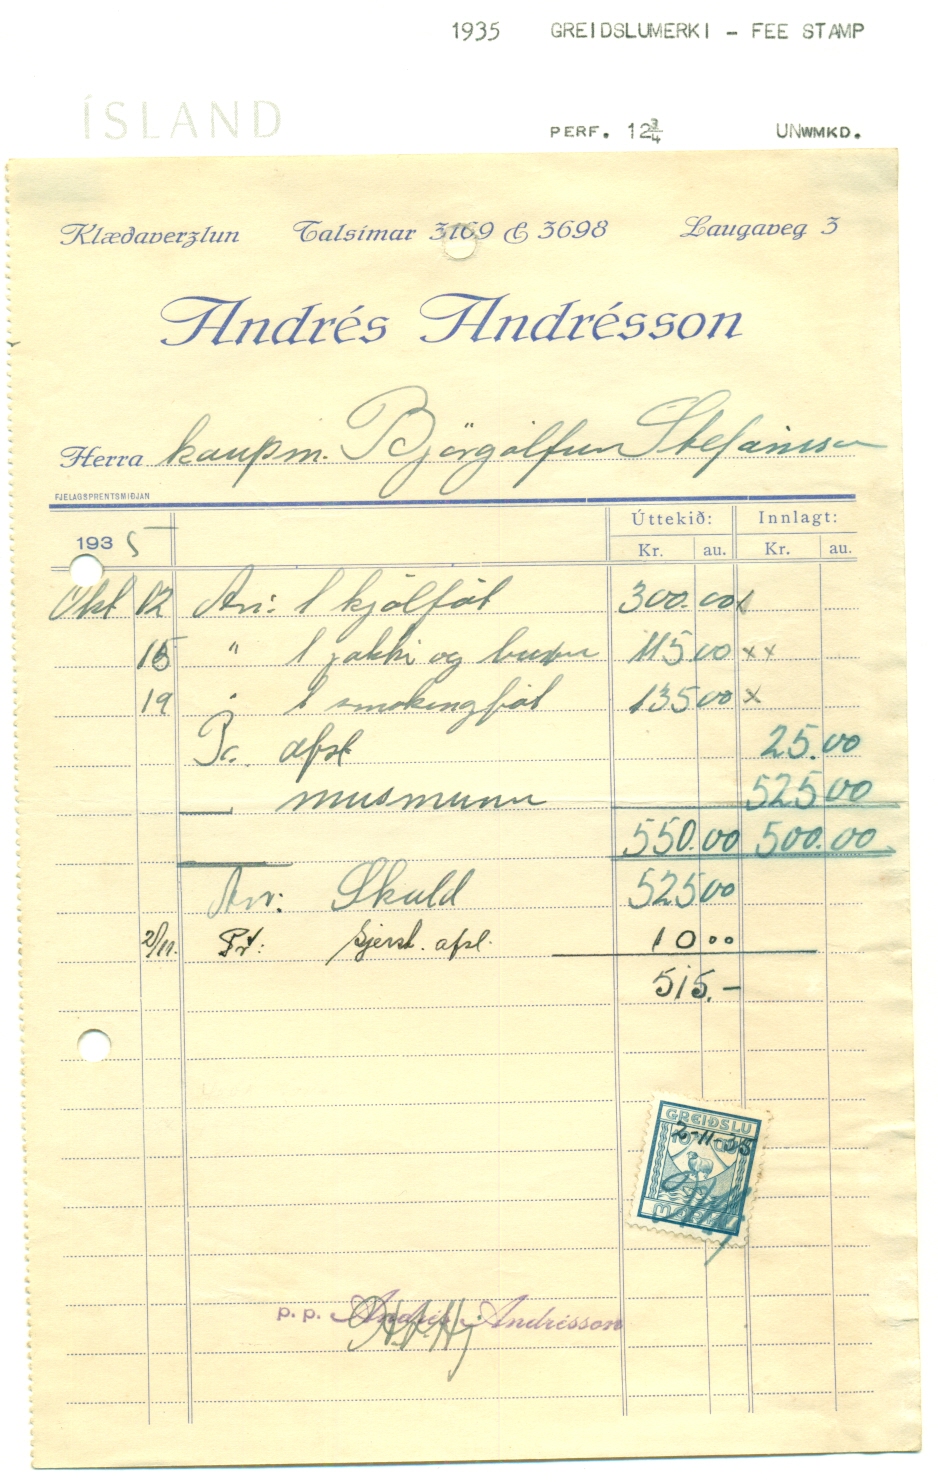 1935 GREIDSLUMERKI - FEE STAMP
ÍSLAND
PERF. 12 3/4 UNWMKD.
Klæðaverzlun Talsímar 3169 & 3698 Laugaveg 3
Andrés Andrésson
Herra kaupm. Björgólfur Stefánsson
FJELAGSPRENTSMIÐJAN
Úttekið: Innlagt:
1935 Kr. au. Kr. au.
Okt 12 1 kjólföt 300.00 x
15 " 1 jakki og buxur 115 00 x x
19 " 1 smokingföt 135 00 x
afsl 25.00
525 00
550.00 500.00
Skuld 525 00
2/11. afsl. 10 00
515.-
GREIÐSLU
2-11-35
MERKI
p.p. Andrés Andrésson